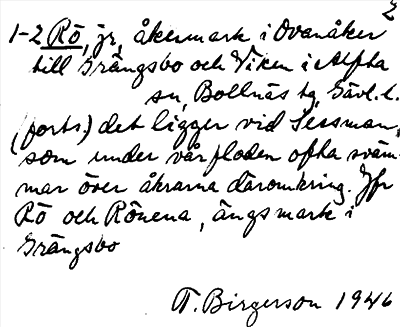 2
1-2 Rö, jr, åkermark i Ovanåker
till Grängsbo och Viken i Alfta
sn, Bollnäs tg, Gävl. l.
(forts.) det ligger vid Lessman,
som under vårfloden ofta sväm-
mar över åkrarna däromkring. Jfr
Rö och Rönena, ängsmark i
Grängsbo
T. Birgerson 1946